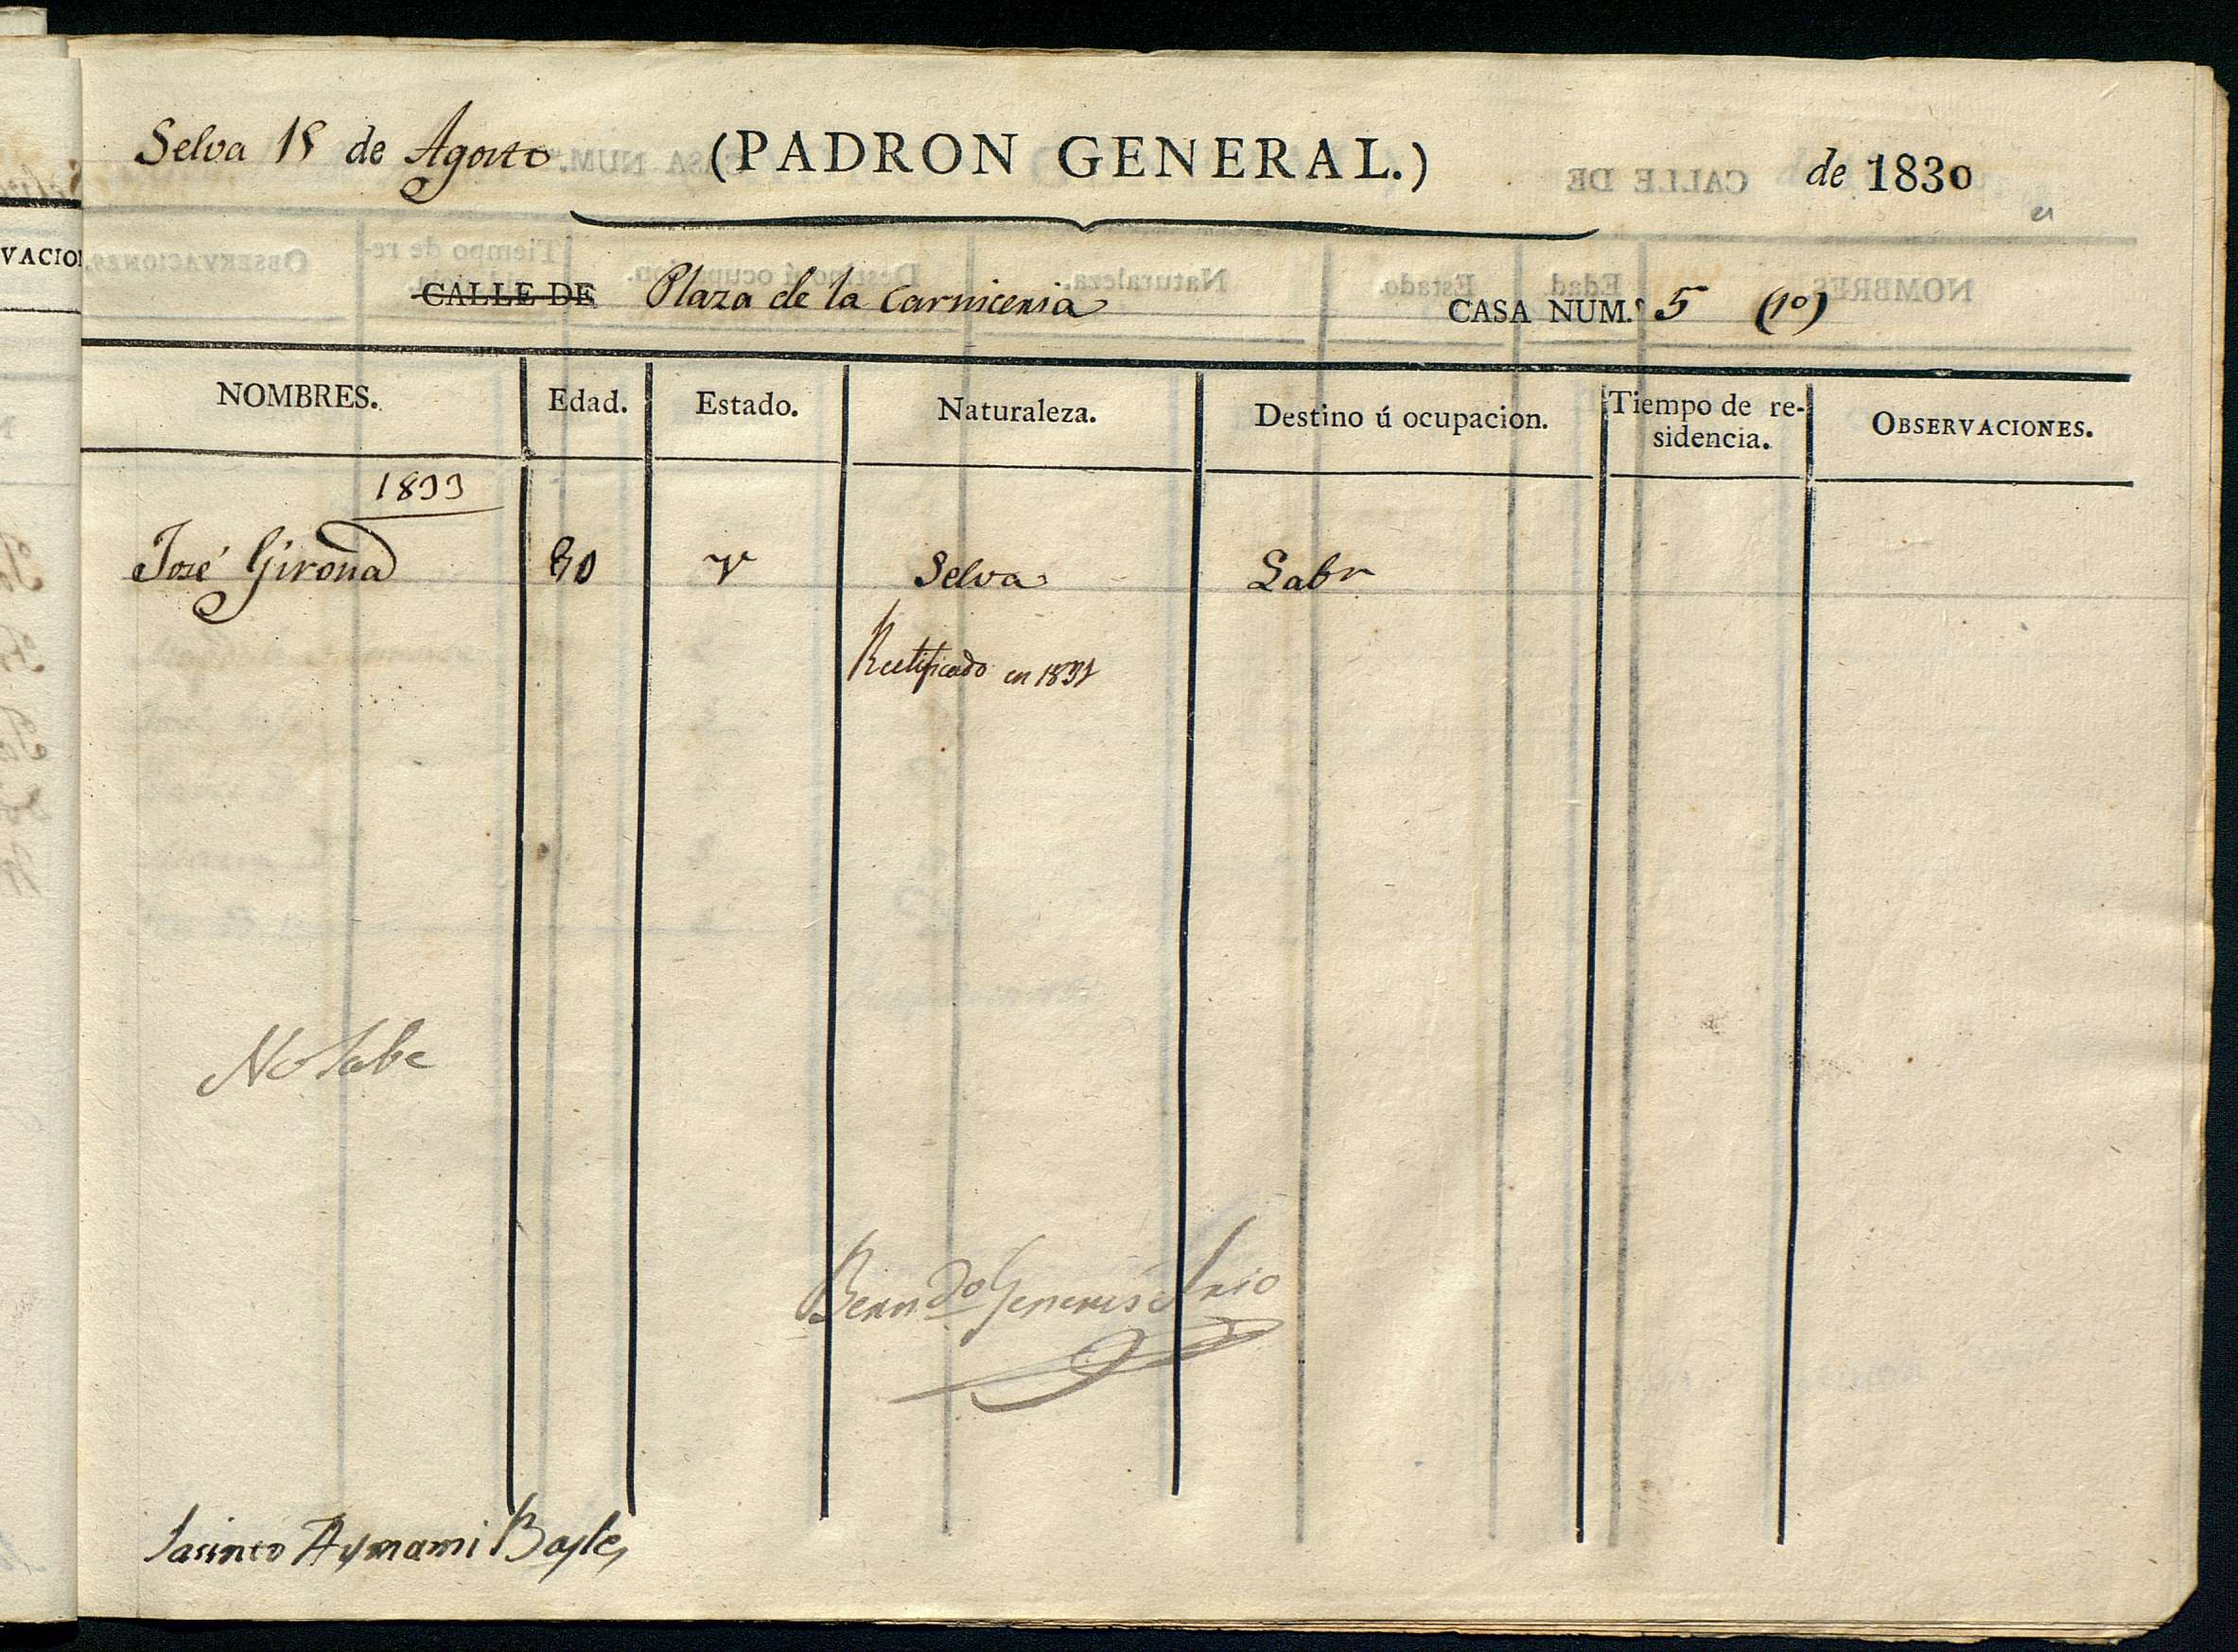 Selva 15 de Agosto (PADRON GENERAL.) de 1830
CALLE DE Plaza de la Carniceria CASA NUM.º 5 (1º)
NOMBRES. Edad. Estado. Naturaleza. Destino ú ocupacion. Tiempo de re-
sidencia. OBSERVACIONES.
1833
José Girona 30 v Selva Labr
Rectificado en 1831
No Sabe
Jasinto Aymami Bayle,
VACIO